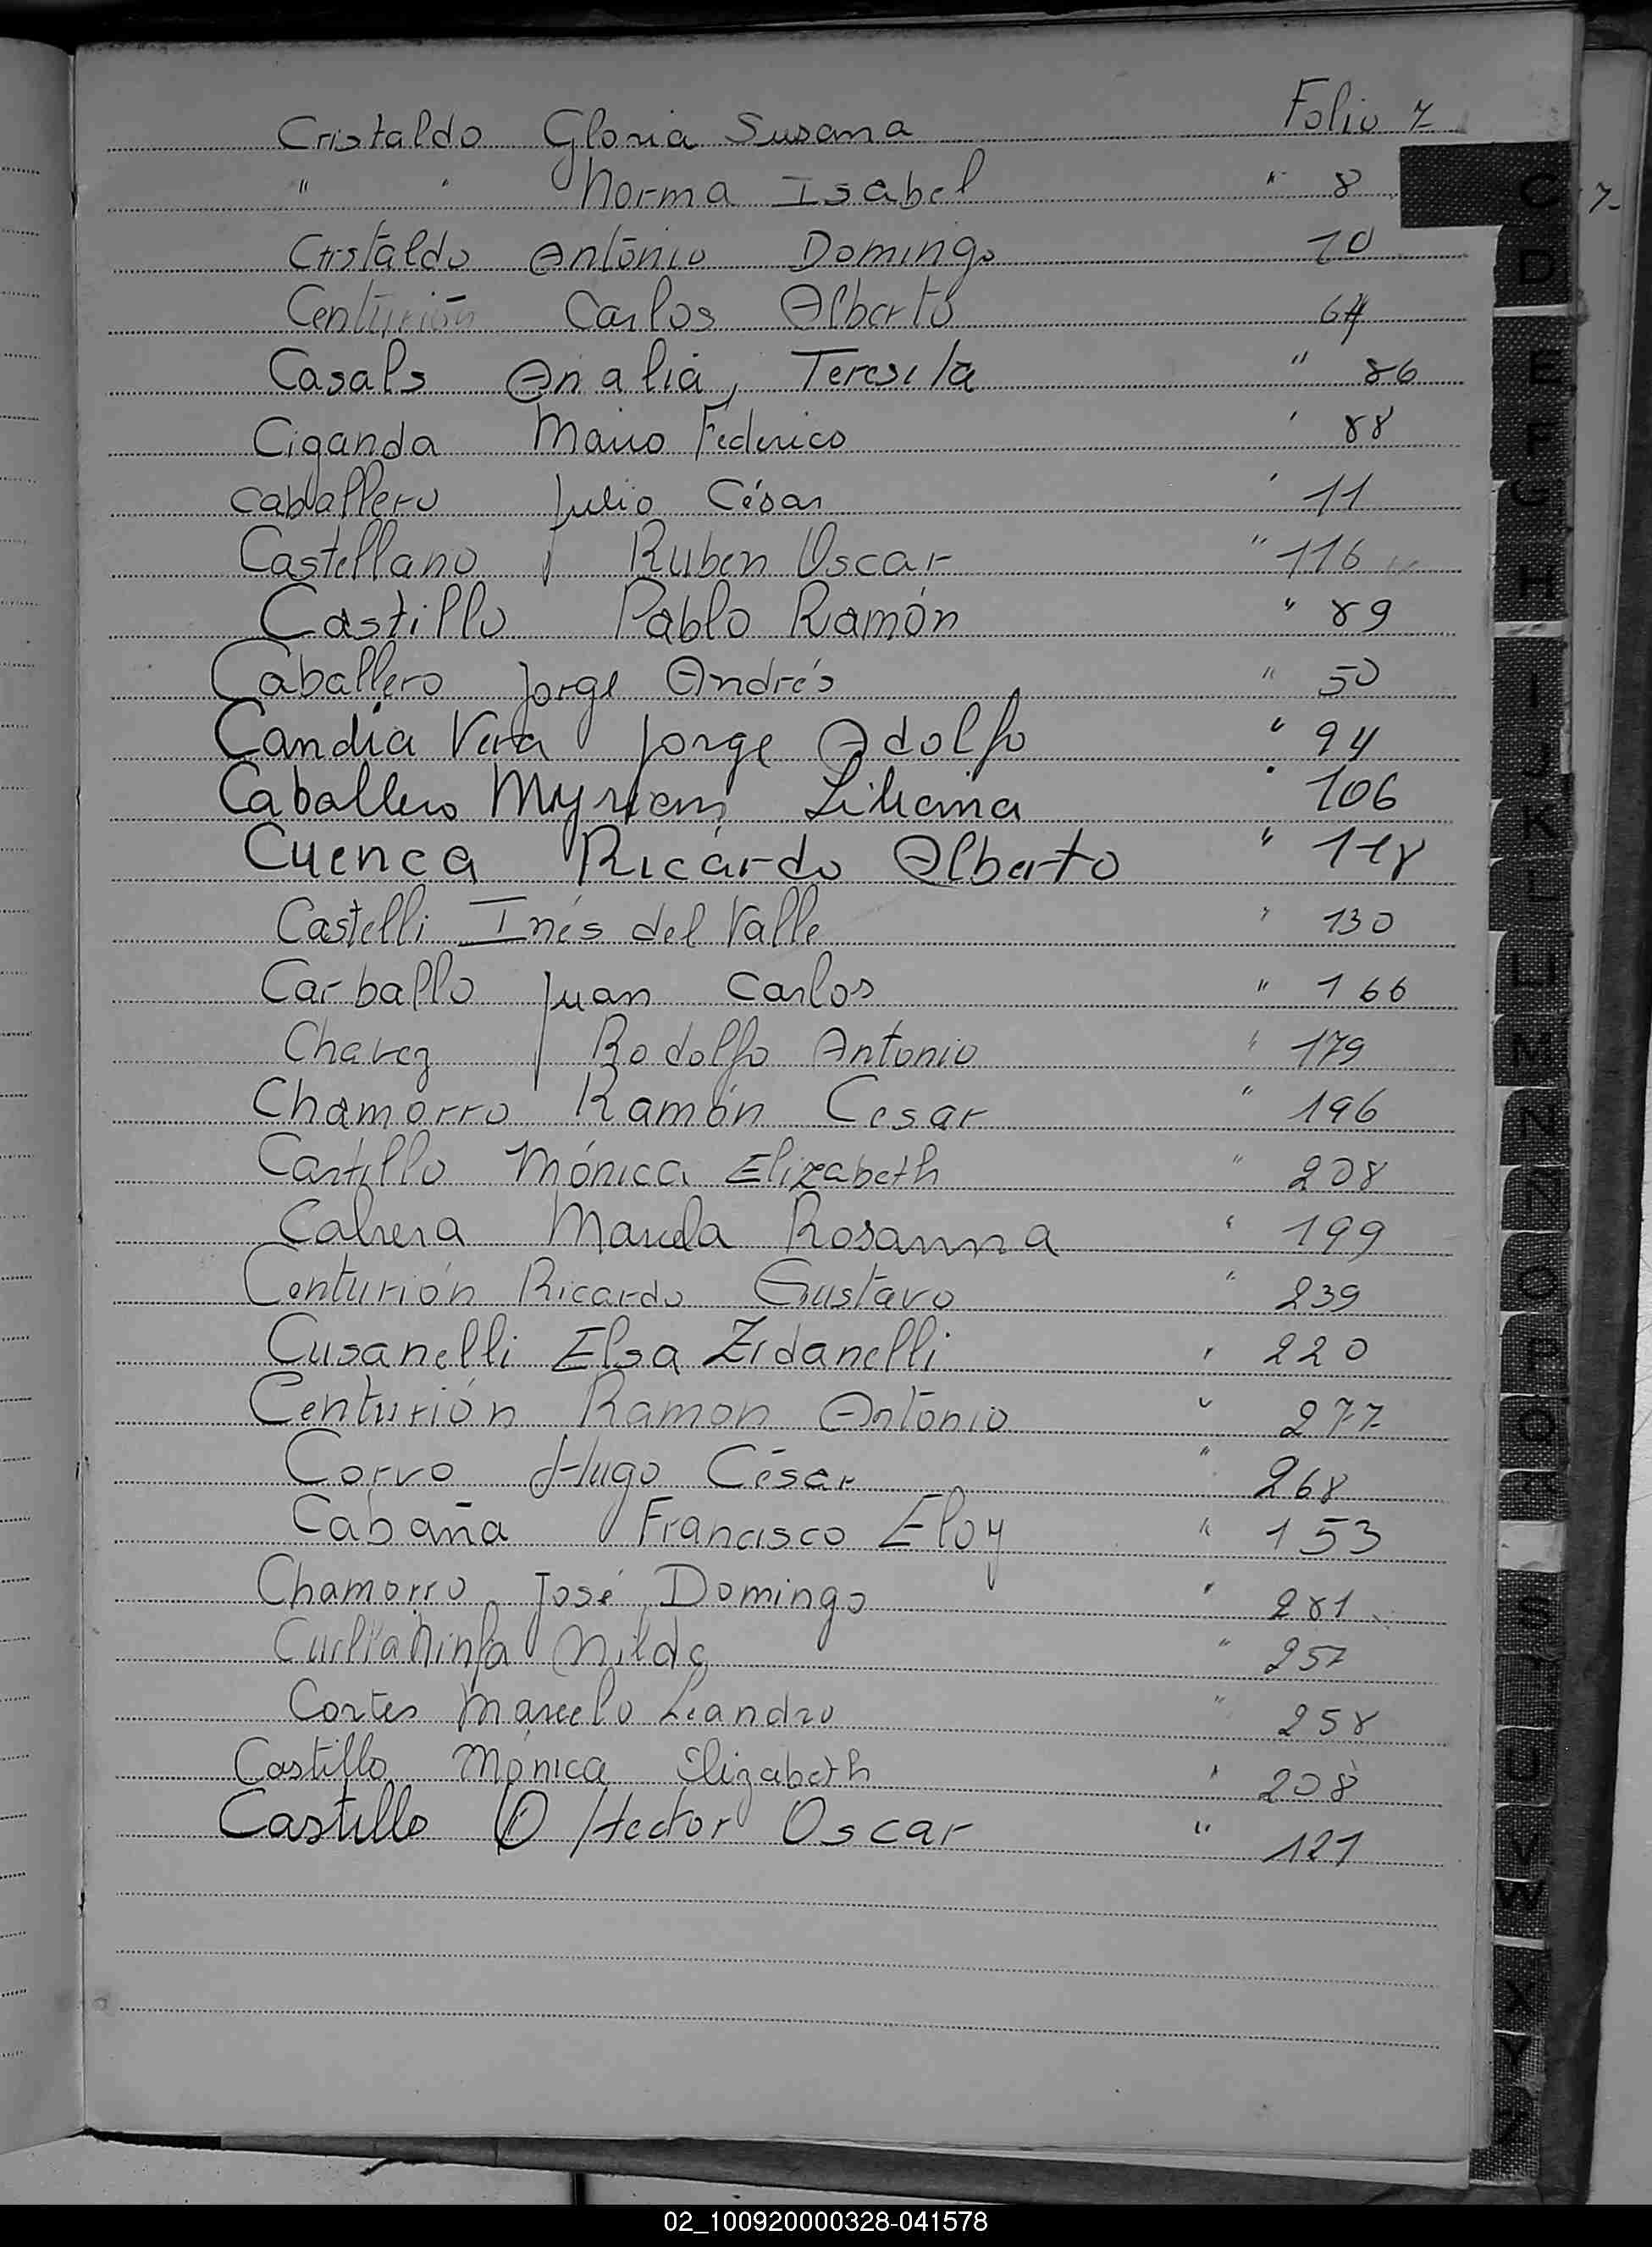 Cristaldo Gloria Susana Folio 7
" " Norma Isabel " 8
Cristaldo Antonio Domingo 10
Centurión Carlos Alberto 64
Casals Analia, Teresita " 86
Ciganda Mario Federico ' 88
Caballero Julio César ' 11
Castellano Ruben Oscar " 116
Castillo Pablo Ramón " 89
Caballero Jorge Andrés " 50
Candia Vera Jorge Adolfo " 94
Caballero Myriam Liliana " 106
Cuenca Ricardo Alberto " 118
Castelli Inés del Valle " 130
Carballo Juan Carlos " 166
Chavez Rodolfo Antonio " 179
Chamorro Ramón Cesar " 196
Castillo Mónica Elizabeth " 208
Cabrera Marcela Rosanna " 199
Centurión Ricardo Gustavo " 239
Cusanelli Elsa Zidanelli ' 220
Centurión Ramon Antonio " 277
Corvo Hugo César " 268
Cabaña Francisco Eloy " 153
Chamorro José Domingo " 281
Ninfa Nilda " 257
Cortes Marcelo Leandro " 258
Castillo Mónica Elizabeth ' 208
Castillo Hector Oscar " 121
C
D
E
F
G
H
I
J
K
L
LL
M
N
Ñ
O
P
Q
S
U
V
W
X
Y
Z
02_100920000328-041578